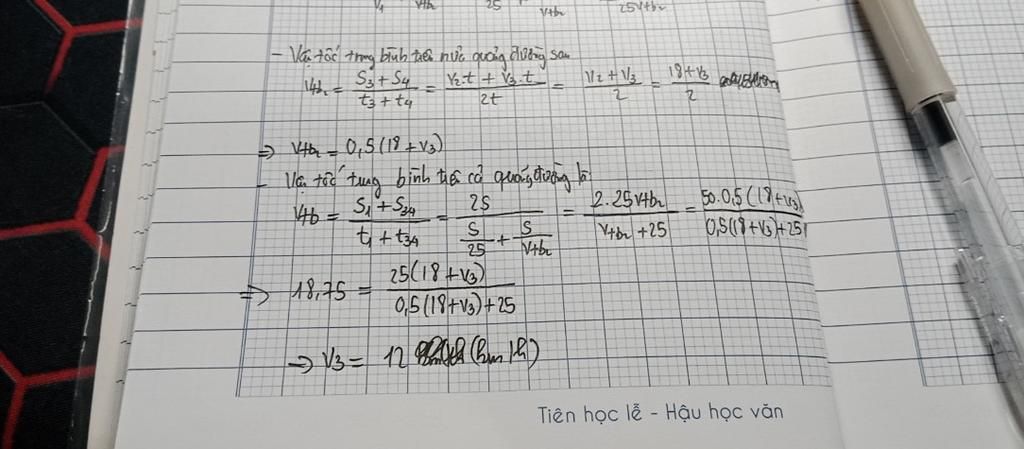 V₁ V+b₂ 25 V+b₂ 25V+b₂
- Vận tốc trung bình trên nửa quãng đường sau
V+b₂ = (S₃ + S₄)/(t₃ + t₄) = (V₂.t + V₃.t)/(2t) = (V₂ + V₃)/2 = (18 + V₃)/2
⇒ V+b₂ = 0,5(18 + V₃)
- Vận tốc trung bình trên cả quãng đường là
V+b = (S₁ + S₃₄)/(t₁ + t₃₄) = 2S/(S/25 + S/V+b₂) = (2.25V+b₂)/(V+b₂ + 25) = (50.0,5(18+V₃))/(0,5(18+V₃)+25)
⇒ 18,75 = (25(18+V₃))/(0,5(18+V₃)+25)
⇒ V₃ = 12 (km/h)
Tiên học lễ - Hậu học văn